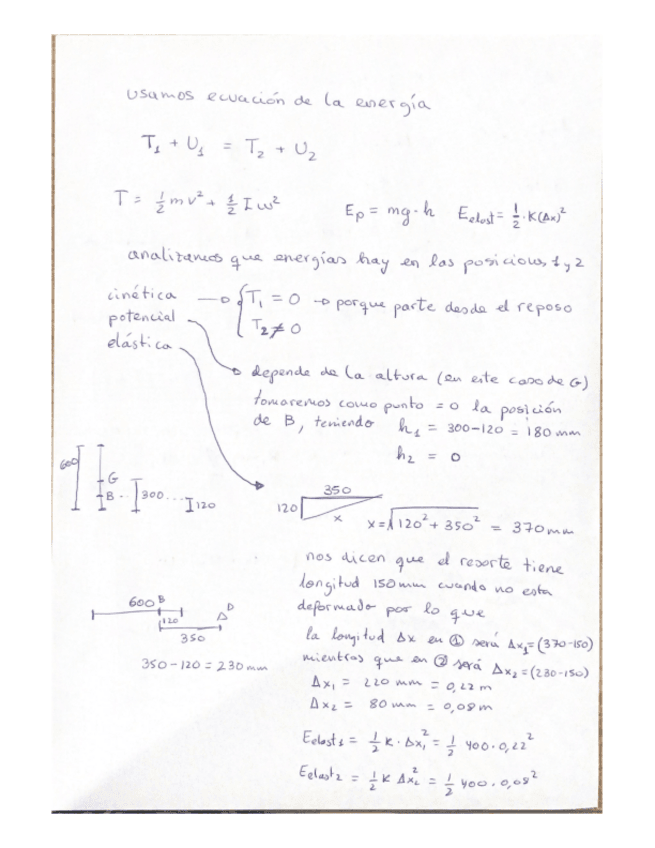 usamos ecuación de la energía
T₁ + U₁ = T₂ + U₂
T = 1/2 m v² + 1/2 I ω²    Ep = mg·h    Eelast = 1/2 · K(Δx)²
analizamos que energías hay en las posiciones 1 y 2
cinética → { T₁ = 0 → porque parte desde el reposo
potencial    T₂ ≠ 0
elástica
depende de la altura (en este caso de G)
tomaremos como punto = 0 la posición
de B, teniendo h₁ = 300-120 = 180 mm
h₂ = 0
600
G
B
300
120
350
120
x
x = √(120² + 350²) = 370 mm
nos dicen que el resorte tiene
longitud 150 mm cuando no esta
deformado por lo que
la longitud Δx en ① será Δx₁=(370-150)
mientras que en ② será Δx₂=(230-150)
Δx₁ = 220 mm = 0,22 m
Δx₂ = 80 mm = 0,08 m
600 B
D
120
350
350-120 = 230 mm
Eelast₁ = 1/2 K · Δx₁² = 1/2 400·0,22²
Eelast₂ = 1/2 K Δx₂² = 1/2 400·0,08²